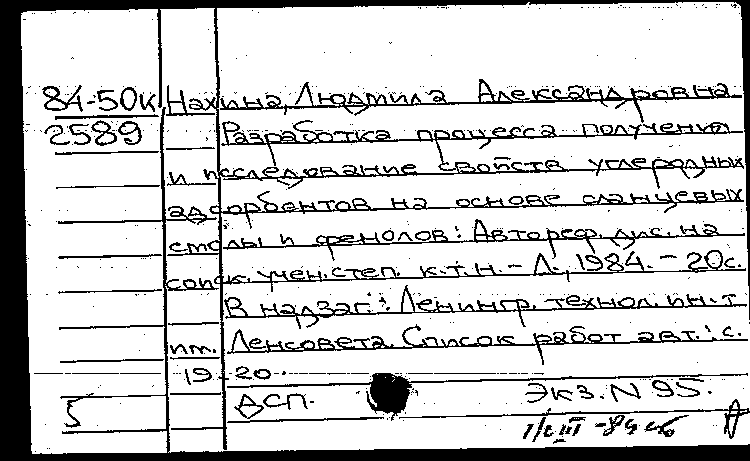 84-50к Нахина, Людмила Александровна
2589 Разработка процесса получения
и исследование свойств углеродных
адсорбентов на основе сланцевых
смолы и фенолов: Автореф. дис. на
соиск. учен. степ. к.т.н. - Л., 1984. - 20с.
В надзаг.: Ленингр. технол. ин-т
им. Ленсовета. Список работ авт.: с.
19-20.
ДСП. Экз. N 95.
5